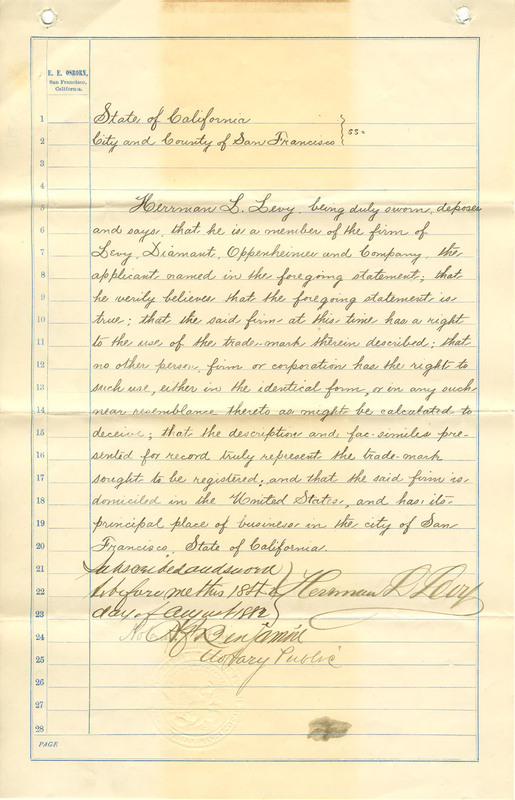 E. E. OSBORN,
San Francisco,
California.
1 State of California
2 City and County of San Francisco } ss.
3
4
5 Herrman L. Levy, being duly sworn, deposes
6 and says, that he is a member of the firm of
7 Levy, Diamant, Oppenheimer and Company, the
8 applicant named in the foregoing statement; that
9 he verily believes that the foregoing statement is
10 true; that the said firm at this time has a right
11 to the use of the trade-mark therein described; that
12 no other person, firm or corporation has the right to
13 such use, either in the identical form, or in any such
14 near resemblance thereto as might be calculated to
15 deceive; that the description and fac-similes pre-
16 sented for record truly represent the trade-mark
17 sought to be registered; and that the said firm is
18 domiciled in the United States, and has its
19 principal place of business in the city of San
20 Francisco, State of California.
21 Subscribed and sword
22 to before me this 18th } Herrman L Levy
23 day of August
24 Benjamin
25 Notary Public
26
27
28
PAGE